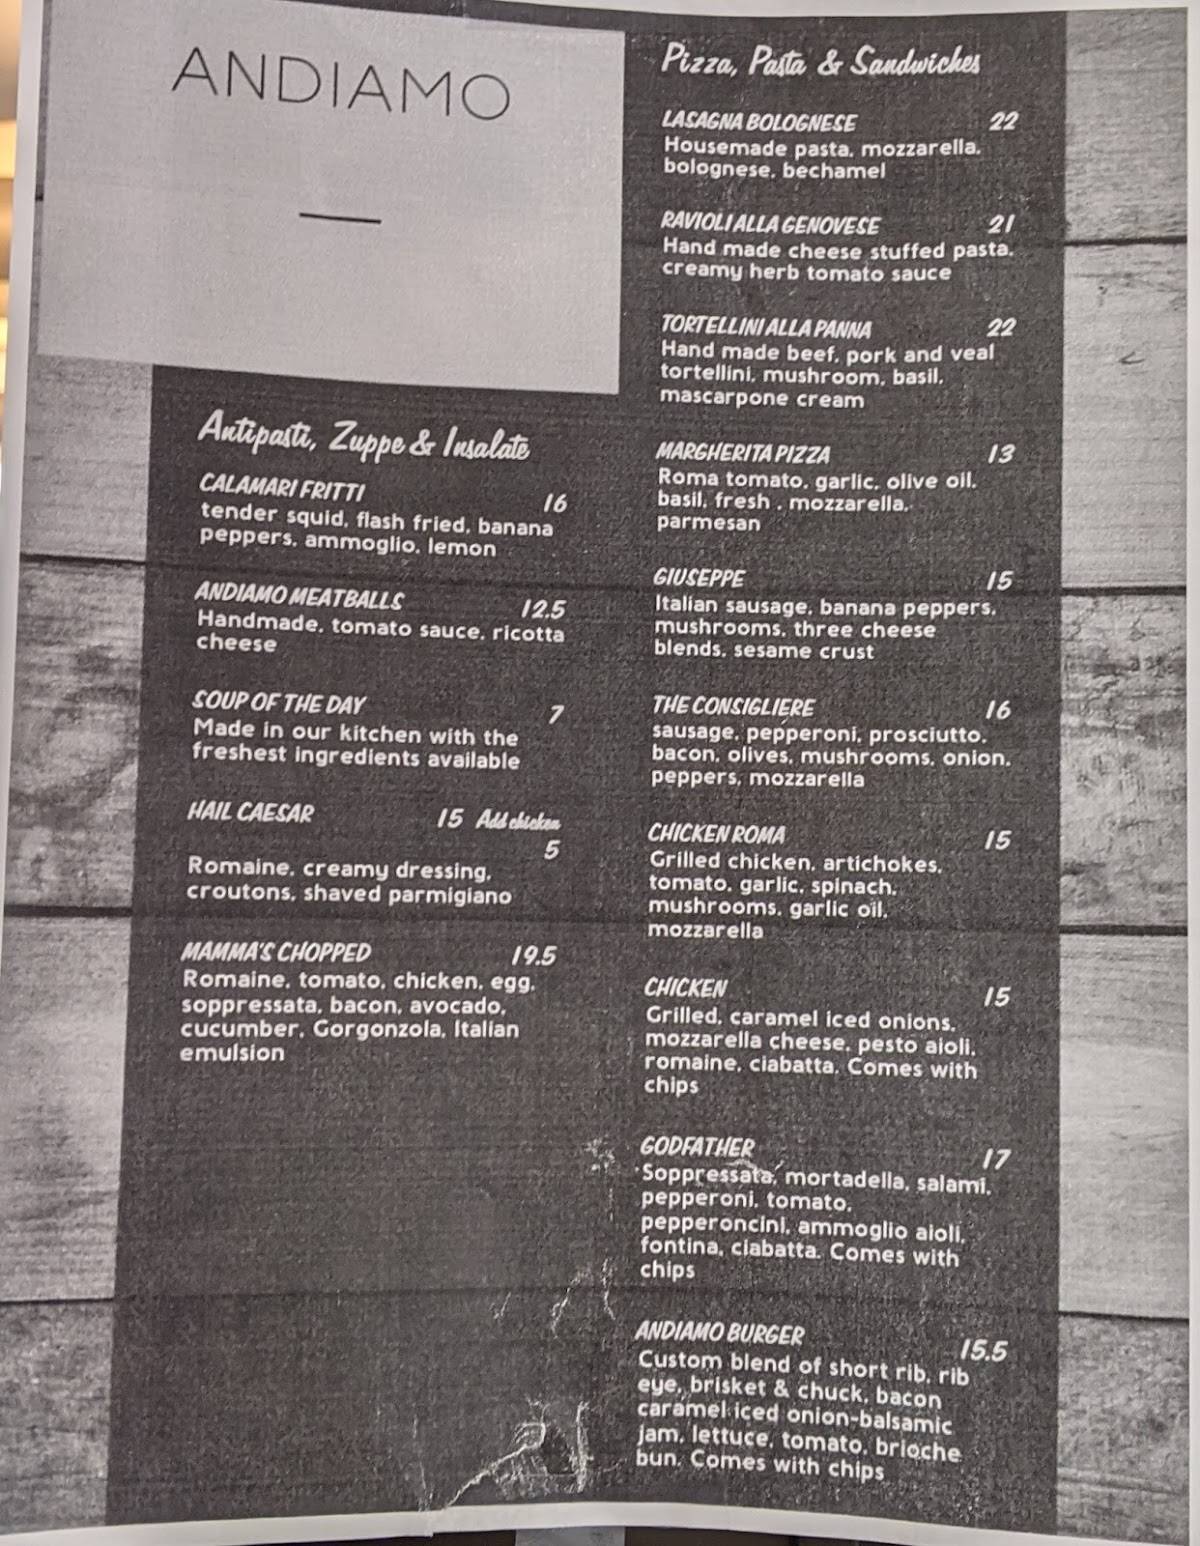 ANDIAMO
Antipasti, Zuppe & Insalate
CALAMARI FRITTI 16
tender squid, flash fried, banana
peppers, ammoglio, lemon
ANDIAMO MEATBALLS 12.5
Handmade, tomato sauce, ricotta
cheese
SOUP OF THE DAY 7
Made in our kitchen with the
freshest ingredients available
HAIL CAESAR 15 Add chicken
5
Romaine, creamy dressing,
croutons, shaved parmigiano
MAMMA'S CHOPPED 19.5
Romaine, tomato, chicken, egg,
soppressata, bacon, avocado,
cucumber, Gorgonzola, Italian
emulsion
Pizza, Pasta & Sandwiches
LASAGNA BOLOGNESE 22
Housemade pasta, mozzarella,
bolognese, bechamel
RAVIOLI ALLA GENOVESE 21
Hand made cheese stuffed pasta,
creamy herb tomato sauce
TORTELLINI ALLA PANNA 22
Hand made beef, pork and veal
tortellini, mushroom, basil,
mascarpone cream
MARGHERITA PIZZA 13
Roma tomato, garlic, olive oil,
basil, fresh , mozzarella,
parmesan
GIUSEPPE 15
Italian sausage, banana peppers,
mushrooms, three cheese
blends, sesame crust
THE CONSIGLIERE 16
sausage, pepperoni, prosciutto,
bacon, olives, mushrooms, onion,
peppers, mozzarella
CHICKEN ROMA 15
Grilled chicken, artichokes,
tomato, garlic, spinach,
mushrooms, garlic oil,
mozzarella
CHICKEN 15
Grilled, caramel iced onions,
mozzarella cheese, pesto aioli,
romaine, ciabatta. Comes with
chips
GODFATHER 17
Soppressata, mortadella, salami,
pepperoni, tomato,
pepperoncini, ammoglio aioli,
fontina, ciabatta. Comes with
chips
ANDIAMO BURGER 15.5
Custom blend of short rib, rib
eye, brisket & chuck, bacon
caramel iced onion-balsamic
jam, lettuce, tomato, brioche
bun. Comes with chips